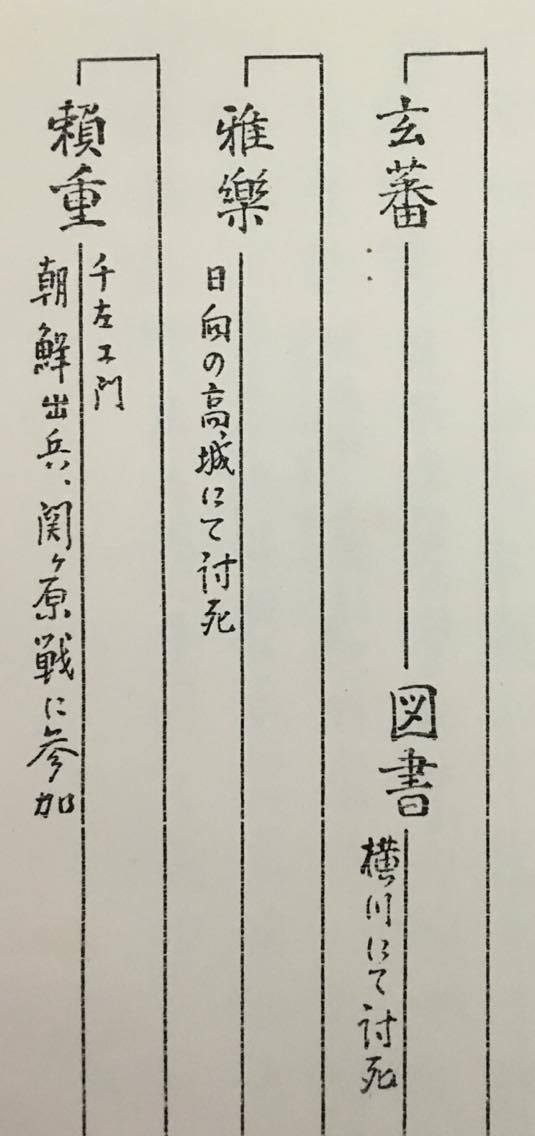 玄蕃
図書
横川にて討死
雅樂
日向の高城にて討死
頼重
千左エ門
朝鮮出兵、関ヶ原戦に参加